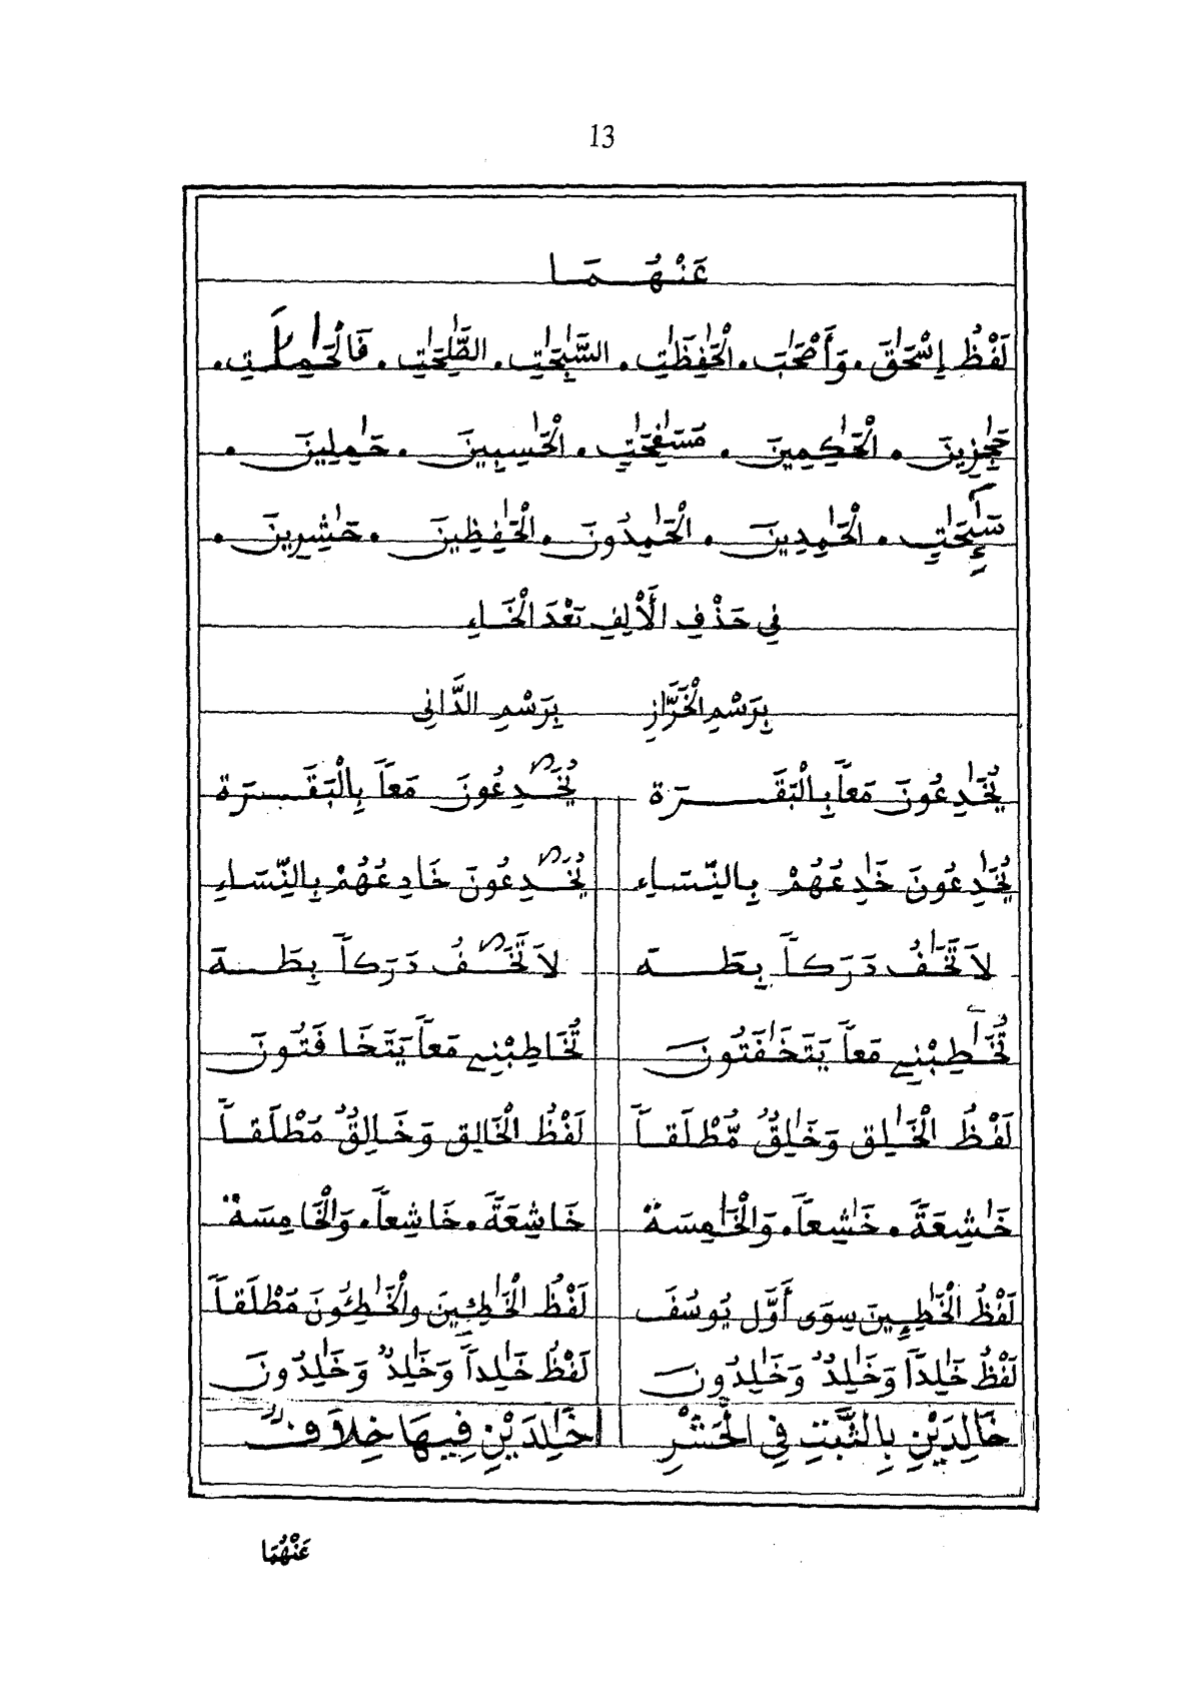 13
عَنْهُمَا
لَفْظُ إِسْحَٰقَ . وَأَصْحَٰبَ . الْحَٰفِظَٰتِ . السَّٰبِحَٰتِ . الصَّٰلِحَٰتِ . فَالْحَٰمِلَٰتِ .
حَٰجِزِينَ . الْحَٰكِمِينَ . مُسَٰفِحَٰتٍ . الْحَٰسِبِينَ . حَٰمِلِينَ .
سَٰٓئِحَٰتٍ . الْحَٰمِدِينَ . الْحَٰمِدُونَ . الْحَٰفِظِينَ . حَٰشِرِينَ .
فِي حَذْفِ الْأَلِفِ بَعْدَ الْخَاءِ
بِرَسْمِ الْخَرَّازِ بِرَسْمِ الدَّانِى
يُخَٰدِعُونَ مَعاً بِالْبَقَرَة يُخَٰدِعُونَ مَعاً بِالْبَقَرَة
يُخَٰدِعُونَ خَٰدِعُهُمْ بِالنِّسَاءِ يُخَٰدِعُونَ خَادِعُهُمْ بِالنِّسَاءِ
لاَ تَخَٰفُ دَرَكاً بِطَهَ لاَ تَخَٰفُ دَرَكاً بِطَهَ
تُخَٰطِبْنِے مَعاً يَتَخَٰفَتُونَ تُخَاطِبْنِے مَعاً يَتَخَافَتُونَ
لَفْظُ الْخَٰلِق وَخَٰلِقٌ مُّطْلَقاً لَفْظُ الْخَالِق وَخَالِقٌ مُطْلَقاً
خَٰشِعَةً . خَٰشِعاً . وَالْخَٰمِسَةُ خَاشِعَةً . خَاشِعاً . وَالْخَامِسَةُ
لَفْظُ الْخَٰطِـِٕينَ سِوَى أَوَّل يُوسُفَ لَفْظُ الْخَٰطِئِينَ والْخَٰطِئُونَ مُطْلَقاً
لَفْظُ خَٰلِداً وَخَٰلِدٌ وَخَٰلِدُونَ لَفْظُ خَٰلِداً وَخَٰلِدٌ وَخَٰلِدُونَ
خَالِدَيْنِ بِالثَّبْتِ فِي الْحَشْرِ خَٰلِدَيْنِ فِيهَا خِلاَفٌ
عَنْهُمَا